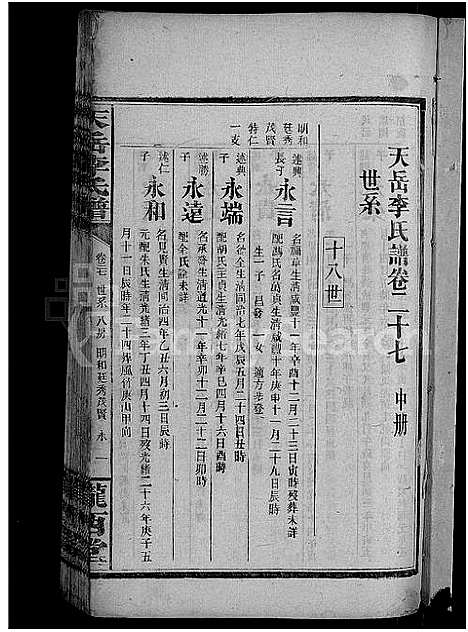 天岳李氏譜卷二十七 中册
世系
十八世
明和
廷秀
茂賢
特仁
一支
述興
長子
永言
名福草生清咸豐十一年辛酉十二月二十三日寅時殁葬未詳
配馮氏名萬貞生清咸豐十年庚申十一月二十九日辰時
生一子 昌發 一女 適方步登
述典
子
永端
名谷全生清同治七年戊辰五月二十四日辰時
配胡氏玉貞生清光緒七年辛巳四月十六日酉時
述勝
子
永遠
名承發生清道光十二年辛卯十二月二十二日卯時
配余氏詮未詳
述仁
子
永和
名見賓生清同治四年乙丑六月初三日辰時
元配朱氏生清光緒三年丁丑四月十四日殁光緒二十六年庚子五
月十一日辰時年二十四葬風窩庚山甲向
天岳李氏譜
卷二七 世系 八房 明和廷秀茂賢 永 一
隴西堂